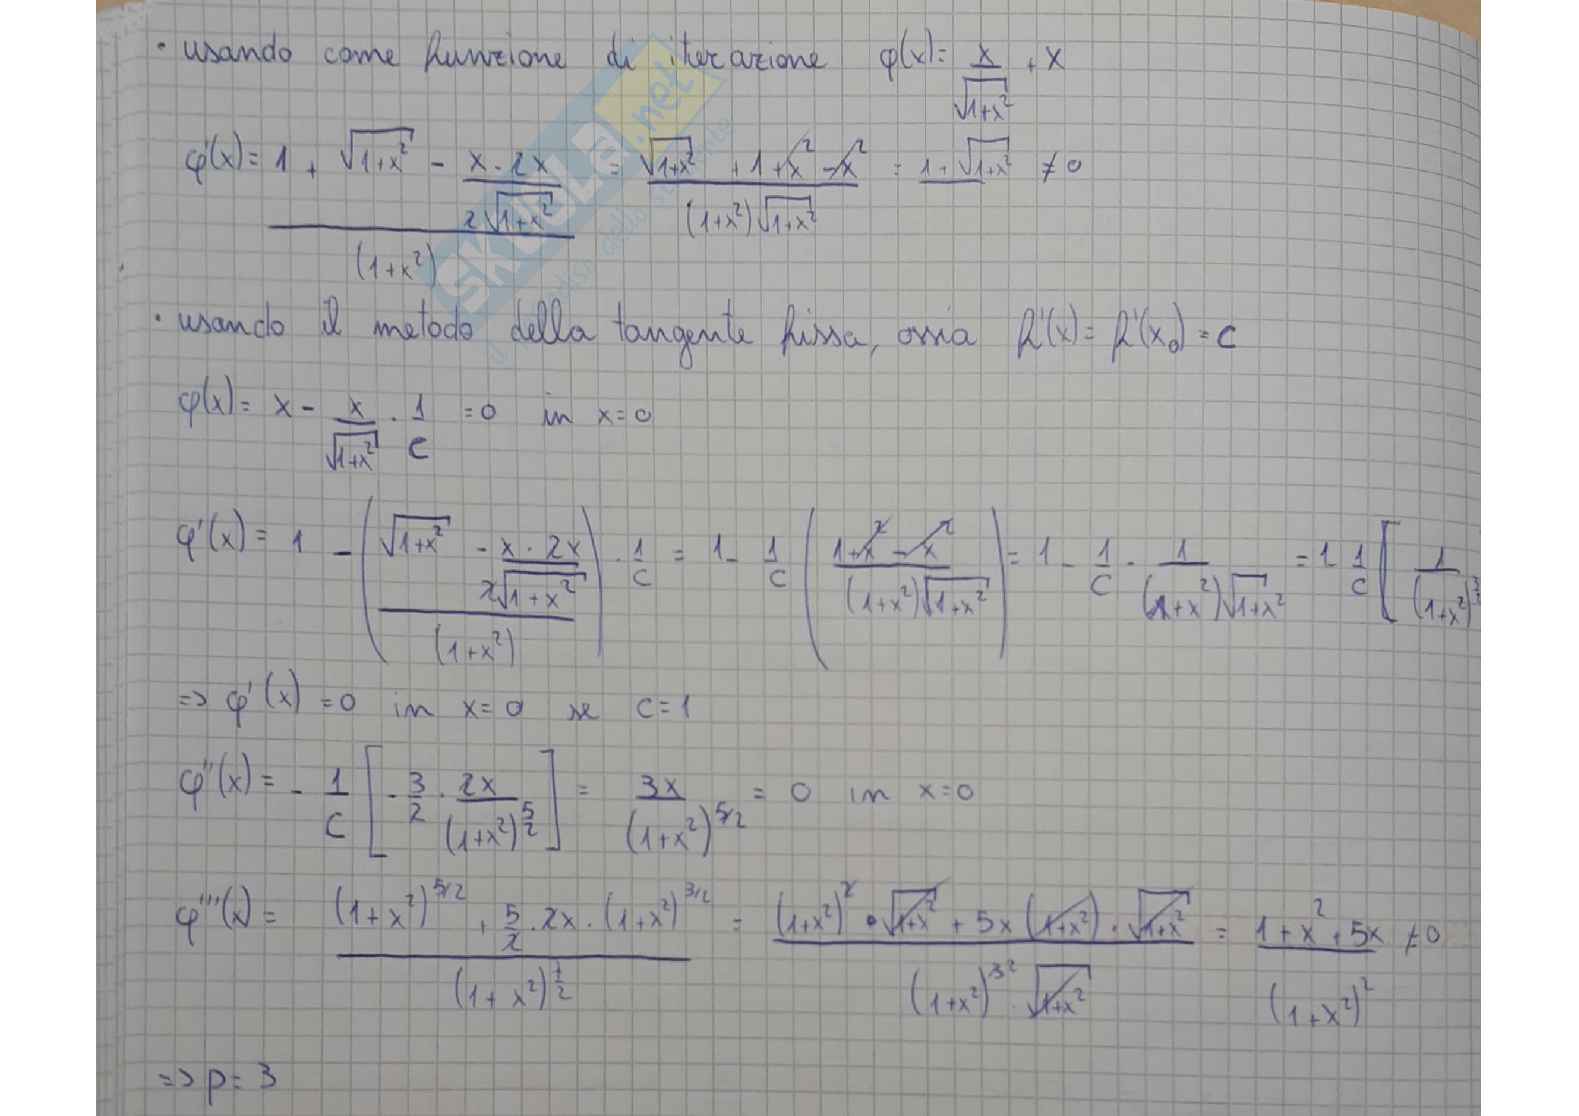 • usando come funzione di iterazione φ(x)= x/√(1+x²) + x
φ'(x)= 1 + (√(1+x²) - x·2x/(2√(1+x²)))/(1+x²) = (√(1+x²) + 1+x²-x²)/((1+x²)√(1+x²)) = 1+√(1+x²) ≠0
• usando il metodo della tangente fissa, ossia f'(x)= f'(x₀)=c
φ(x)= x - x/√(1+x²) · 1/c =0 in x=0
φ'(x) = 1 - ((√(1+x²) - x·2x/(2√(1+x²)))/(1+x²)) · 1/c = 1- 1/c ((1+x²-x²)/((1+x²)√(1+x²))) = 1 - 1/c · 1/((1+x²)√(1+x²)) = 1 1/c [1/(1+x²)^3/2
=> φ'(x) =0 in x=0 se c=1
φ''(x)= - 1/c [-3/2 · 2x/(1+x²)^5/2] = 3x/(1+x²)^5/2 = 0 in x=0
φ'''(x)= ((1+x²)^5/2 + 5/2·2x·(1+x²)^3/2)/(1+x²)^7/2 = ((1+x²)²·√(1+x²) + 5x(1+x²)·√(1+x²))/((1+x²)^3 2·√(1+x²)) = (1+x²+5x)/(1+x²)² ≠0
=> p= 3
SKUOLA.net